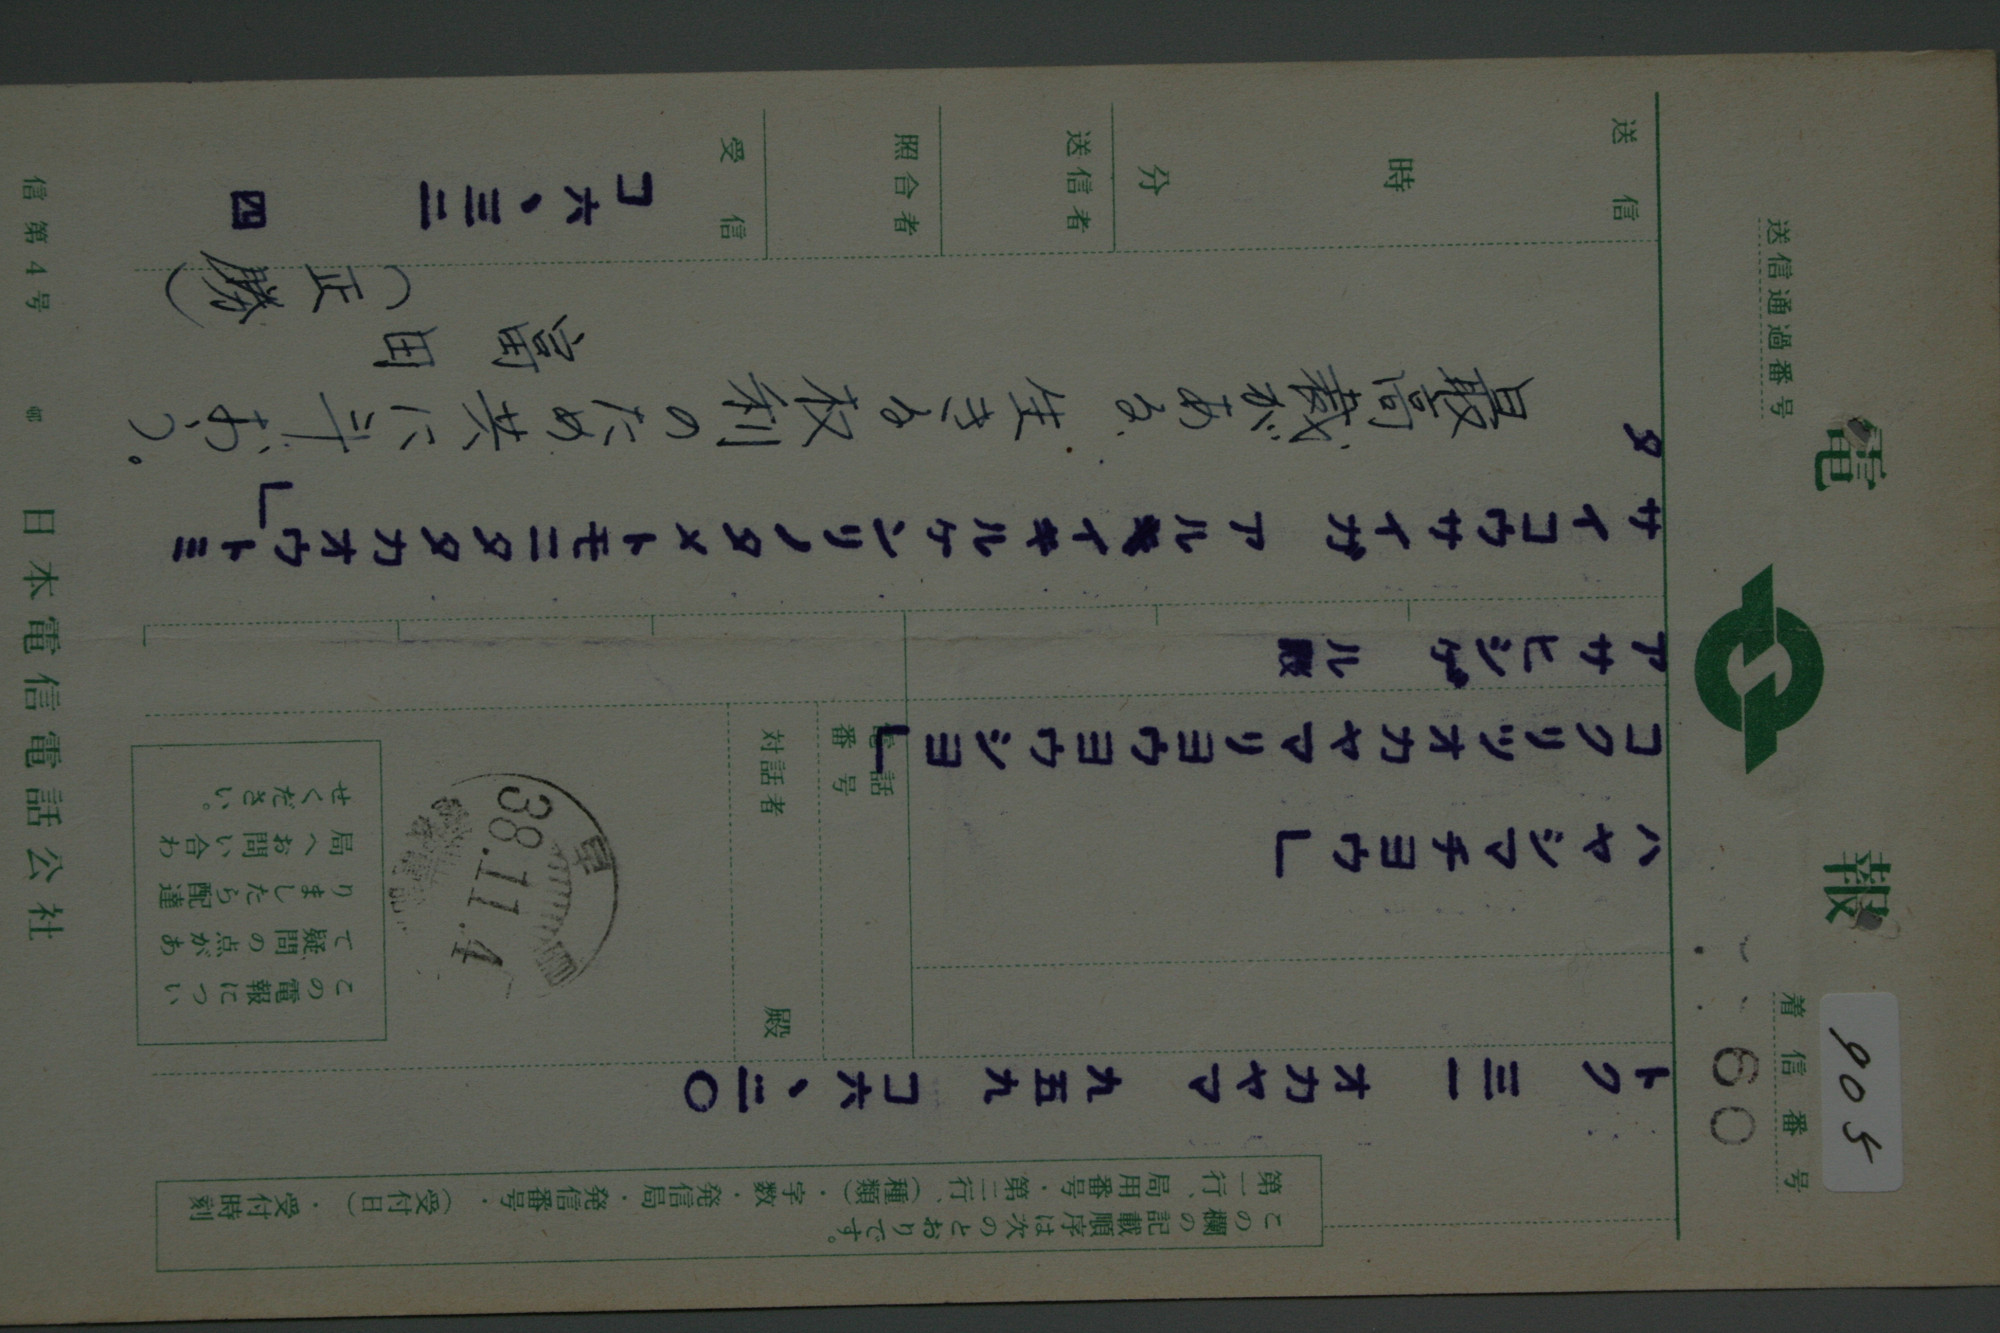 電報
送信通過番号
着信番号
60
905
この欄の記載順序は次のとおりです。
第一行、局用番号・第二行、(種類)・字数・発信局・発信番号・(受付日)・受付時刻
トク 三一 オカヤマ 九五九 コ六、二〇
ハヤシマチヨウ」
コクリツオカヤマリヨウヨウシヨ」
アサヒシゲル殿
サイコウサイガアルイキルケンリノタメトモニタタカオウ」トミ
タ
最高裁がある、生きる権利のため共に斗おう。
富田
(正勝)
電話番号
対話者
殿
38.11.4
この電報について疑問の点がありましたら配達局へお問い合わせください。
送信
時
分
送信者
照合者
受信
コ六、三二
四
信第4号
日本電信電話公社